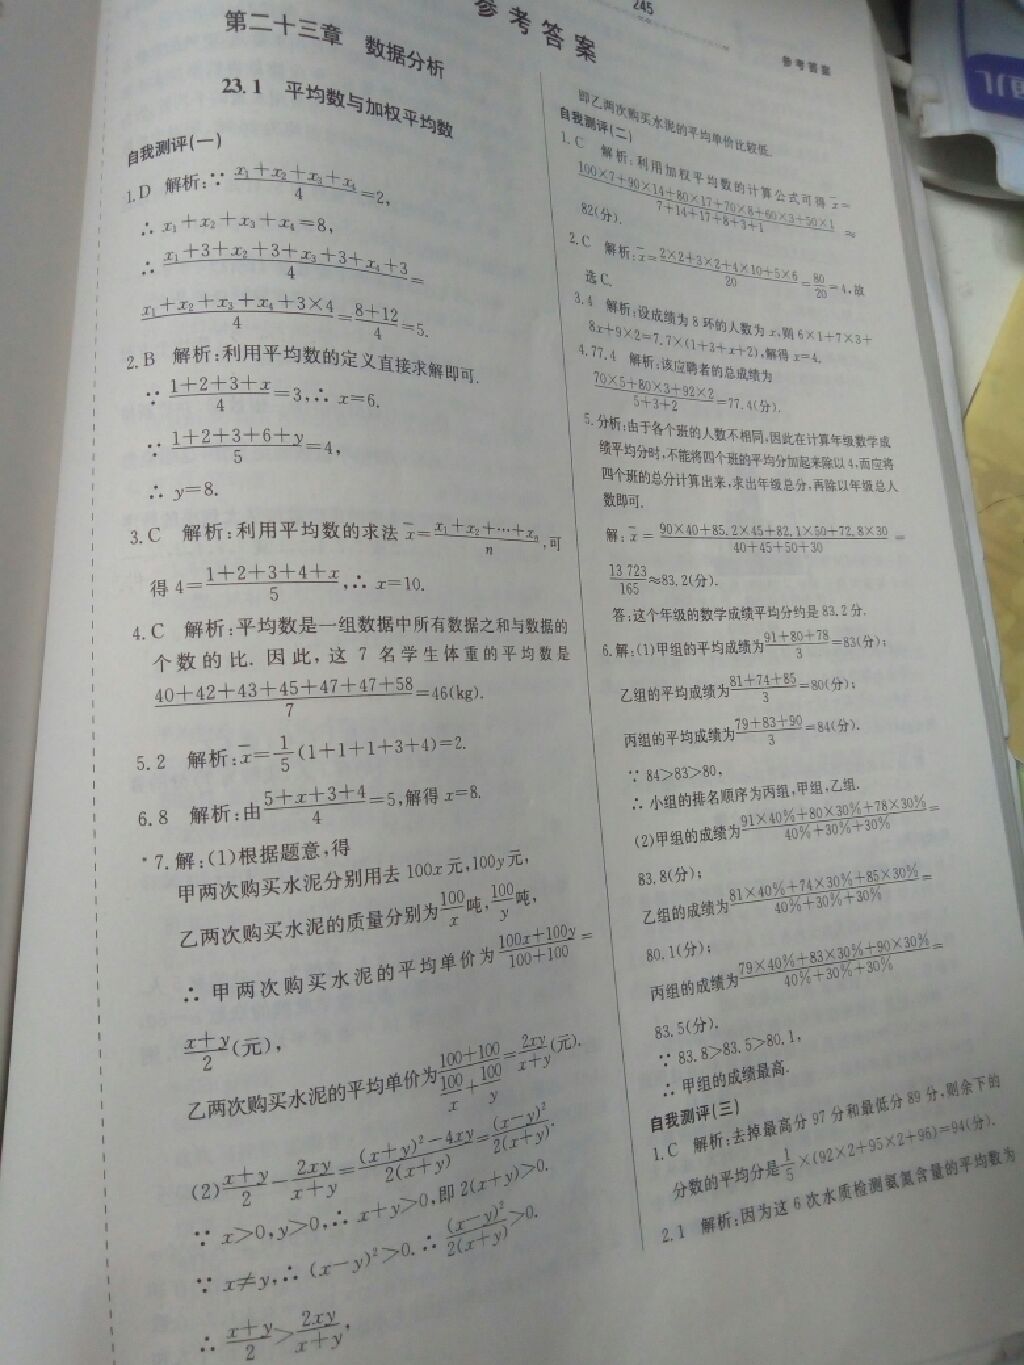 245
参考答案
参考答案
第二十三章 数据分析
23.1 平均数与加权平均数
自我测评(一)
1.D 解析:∵ (x₁+x₂+x₃+x₄)/4=2,
∴ x₁+x₂+x₃+x₄=8,
∴ (x₁+3+x₂+3+x₃+3+x₄+3)/4=
(x₁+x₂+x₃+x₄+3×4)/4=(8+12)/4=5.
2.B 解析:利用平均数的定义直接求解即可.
∵ (1+2+3+x)/4=3,∴ x=6.
∵ (1+2+3+6+y)/5=4,
∴ y=8.
3.C 解析:利用平均数的求法x̄=(x₁+x₂+⋯+xₙ)/n,可
得4=(1+2+3+4+x)/5,∴ x=10.
4.C 解析:平均数是一组数据中所有数据之和与数据的
个数的比. 因此,这 7 名学生体重的平均数是
(40+42+43+45+47+47+58)/7=46(kg).
5.2 解析:x̄=1/5(1+1+1+3+4)=2.
6.8 解析:由(5+x+3+4)/4=5,解得 x=8.
7.解:(1)根据题意,得
甲两次购买水泥分别用去 100x 元,100y 元,
乙两次购买水泥的质量分别为100/x吨,100/y吨,
∴ 甲两次购买水泥的平均单价为(100x+100y)/(100+100)=
(x+y)/2(元),
乙两次购买水泥的平均单价为(100+100)/(100/x+100/y)=2xy/(x+y)(元).
(2)(x+y)/2-2xy/(x+y)=((x+y)²-4xy)/(2(x+y))=(x-y)²/(2(x+y)).
∵ x>0,y>0,∴ x+y>0,即 2(x+y)>0.
∵ x≠y,∴ (x-y)²>0.∴ (x-y)²/(2(x+y))>0.
∴ (x+y)/2>2xy/(x+y),
即乙两次购买水泥的平均单价比较低.
自我测评(二)
1.C 解析:利用加权平均数的计算公式可得 x̄=
(100×7+90×14+80×17+70×8+60×3+50×1)/(7+14+17+8+3+1)≈
82(分).
2.C 解析:x̄=(2×2+3×2+4×10+5×6)/20=80/20=4,故
选C.
3.4 解析:设成绩为 8 环的人数为 x,则 6×1+7×3+
8x+9×2=7.7×(1+3+x+2),解得 x=4.
4.77.4 解析:该应聘者的总成绩为
(70×5+80×3+92×2)/(5+3+2)=77.4(分).
5.分析:由于各个班的人数不相同,因此在计算年级数学成
绩平均分时,不能将四个班的平均分加起来除以 4,而应将
四个班的总分计算出来,求出年级总分,再除以年级总人
数即可.
解:x̄=(90×40+85.2×45+82.1×50+72.8×30)/(40+45+50+30)=
13 723/165≈83.2(分).
答:这个年级的数学成绩平均分约是 83.2 分.
6.解:(1)甲组的平均成绩为(91+80+78)/3=83(分);
乙组的平均成绩为(81+74+85)/3=80(分);
丙组的平均成绩为(79+83+90)/3=84(分).
∵ 84>83>80,
∴ 小组的排名顺序为丙组,甲组,乙组.
(2)甲组的成绩为(91×40%+80×30%+78×30%)/(40%+30%+30%)=
83.8(分);
乙组的成绩为(81×40%+74×30%+85×30%)/(40%+30%+30%)=
80.1(分);
丙组的成绩为(79×40%+83×30%+90×30%)/(40%+30%+30%)=
83.5(分).
∵ 83.8>83.5>80.1,
∴ 甲组的成绩最高.
自我测评(三)
1.C 解析:去掉最高分 97 分和最低分 89 分,则余下的
分数的平均分是1/5×(92×2+95×2+96)=94(分).
2.1 解析:因为这 6 次水质检测氨氮含量的平均数为